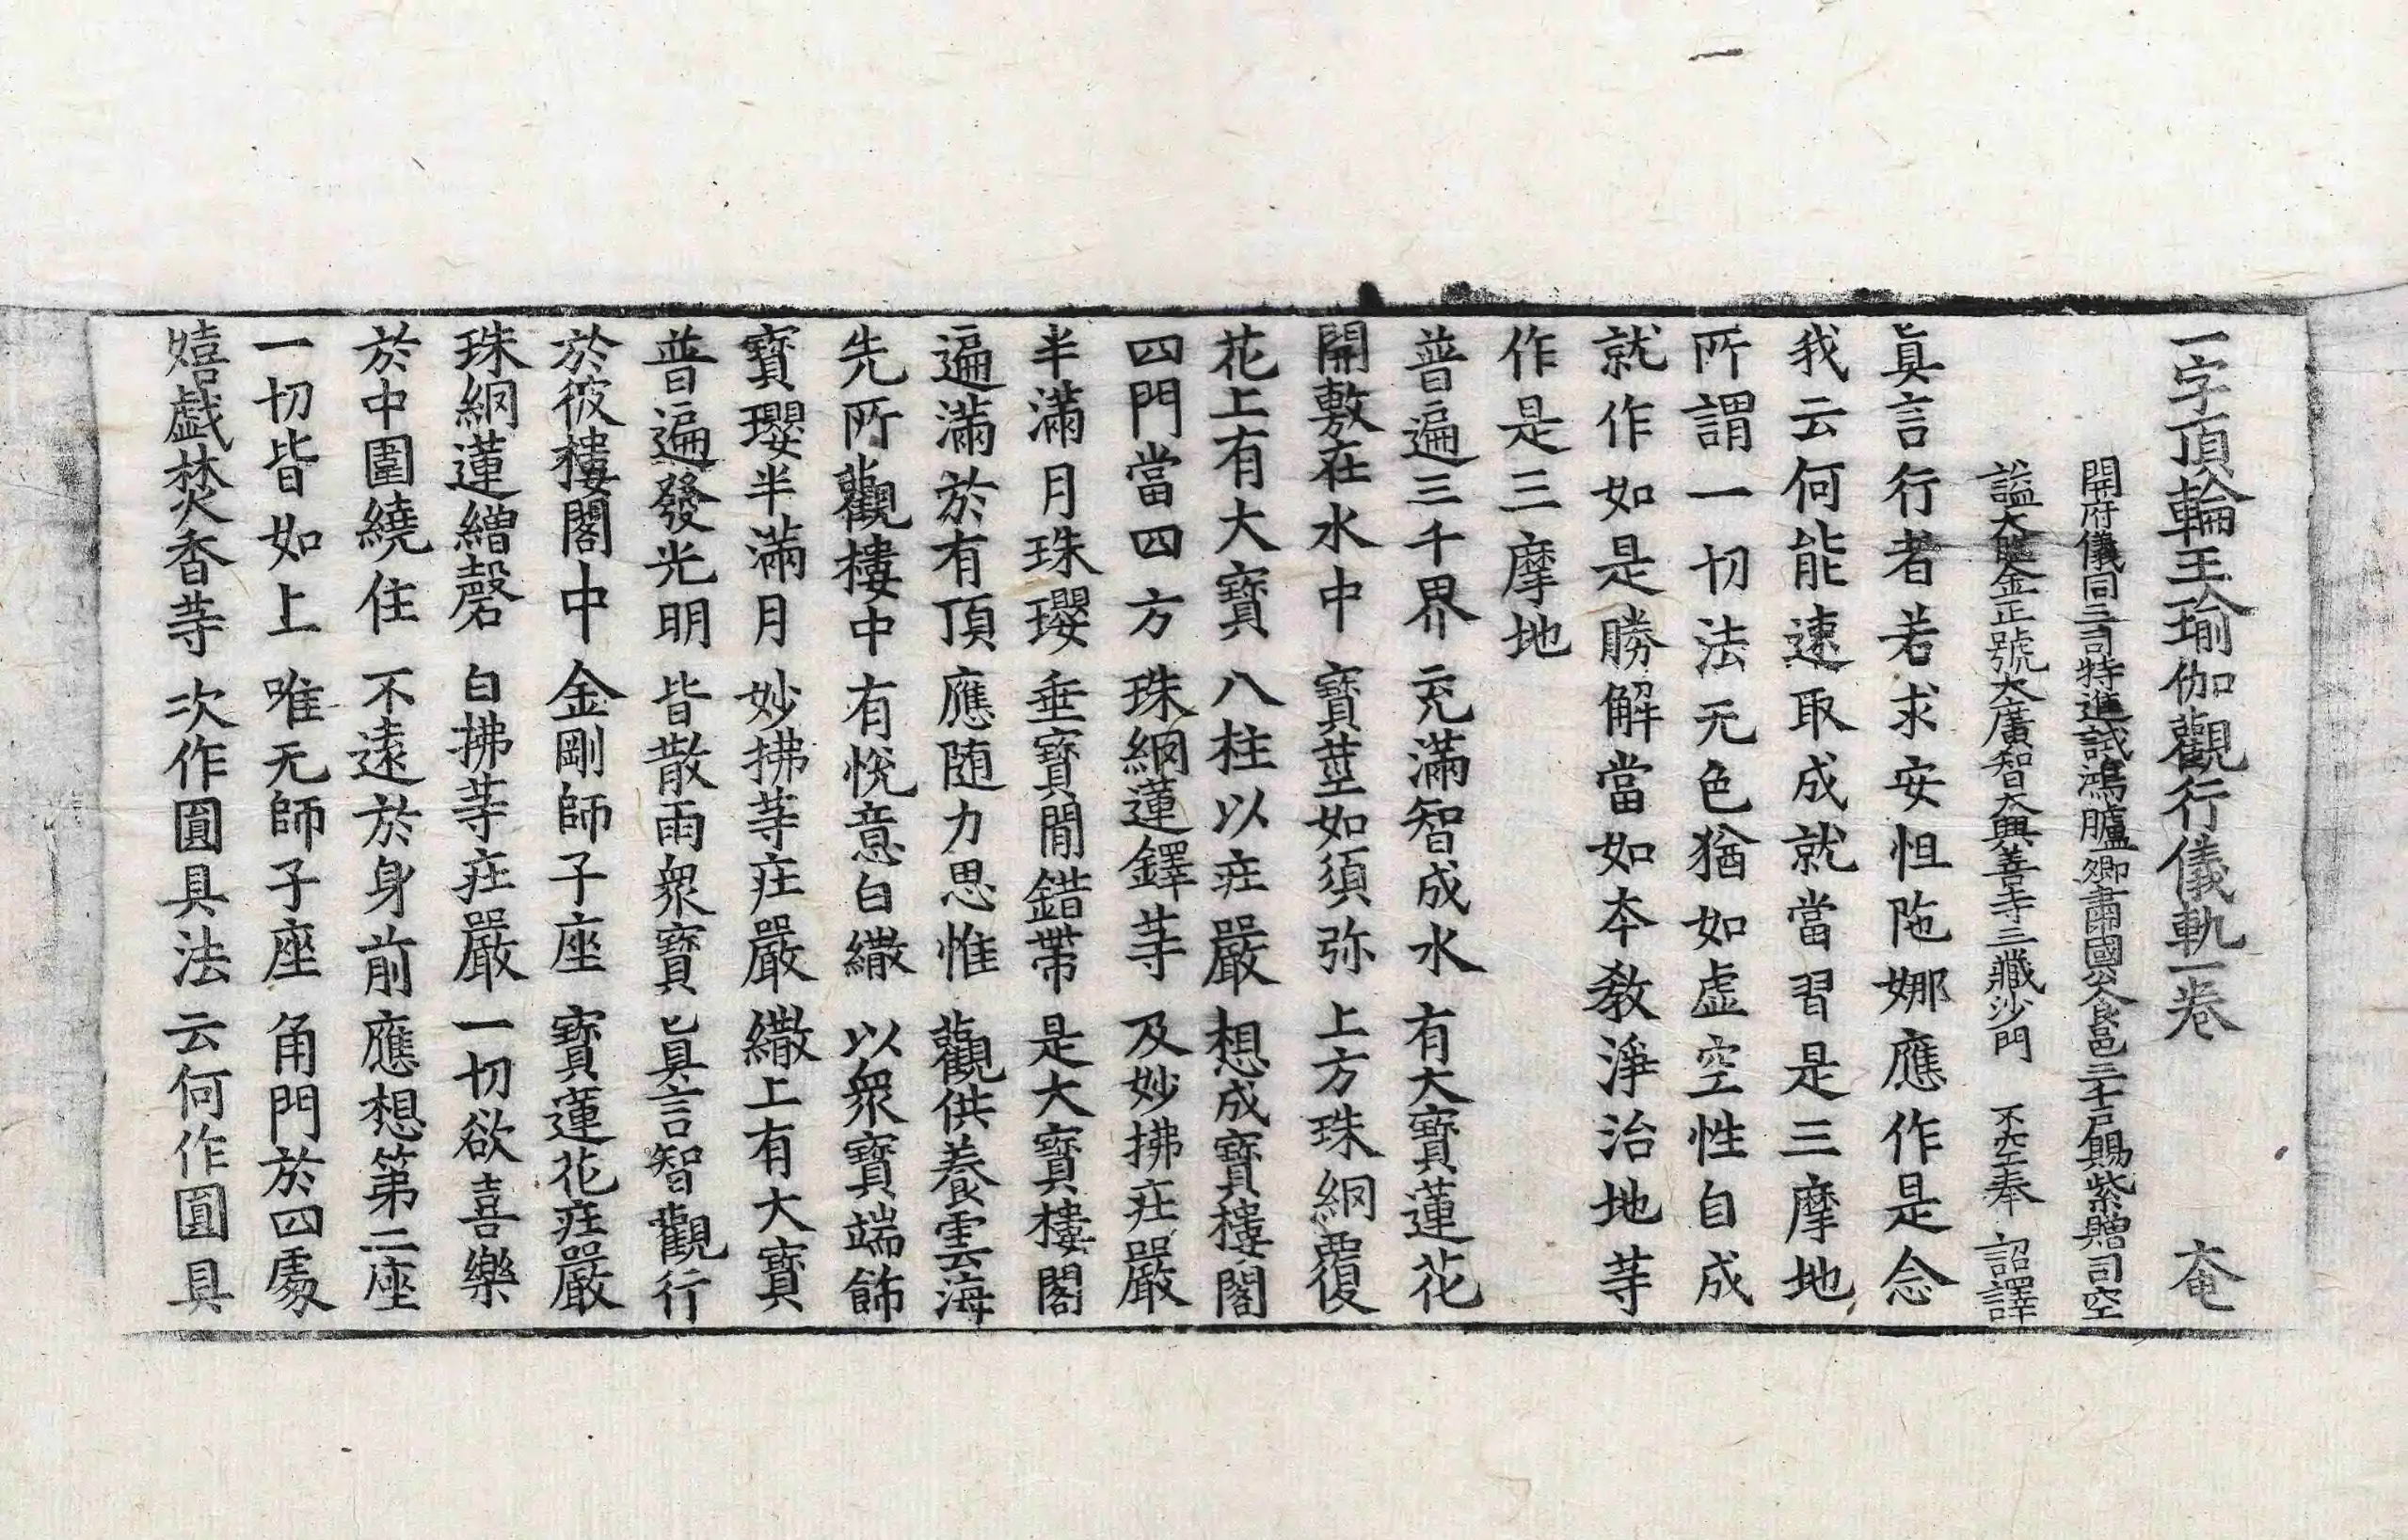 一字頂輪王瑜伽觀行儀軌一卷 奄
開府儀同三司特進試鴻臚卿肅國公食邑三千戶賜紫贈司空
謚大鑒正號大廣智大興善寺三藏沙門 不空奉 詔譯
眞言行者若求安怛陁娜應作是念
我云何能速取成就當習是三摩地
所謂一切法无色猶如虛空性自成
就作如是勝解當如本教淨治地䒭
作是三摩地
普遍三千界 充滿智成水 有大寶蓮花
開敷在水中 寶莖如須弥 上方珠網覆
花上有大寶 八柱以莊嚴 想成寶樓閣
四門當四方 珠網蓮鐸䒭 及妙拂莊嚴
半滿月珠瓔 垂寶間錯帶 是大寶樓閣
遍滿於有頂 應随力思惟 觀供養雲海
先所觀樓中 有悅意白繖 以衆寶端飾
寶瓔半滿月 妙拂䒭莊嚴 繖上有大寶
普遍發光明 皆散雨衆寶 眞言智觀行
於彼樓閣中 金剛師子座 寶蓮花莊嚴
珠網蓮繒磬 白拂䒭莊嚴 一切欲喜樂
於中圍繞住 不遠於身前 應想第二座
一切皆如上 唯无師子座 角門於四處
嬉戲焚香䒭 次作圓具法 云何作圓具